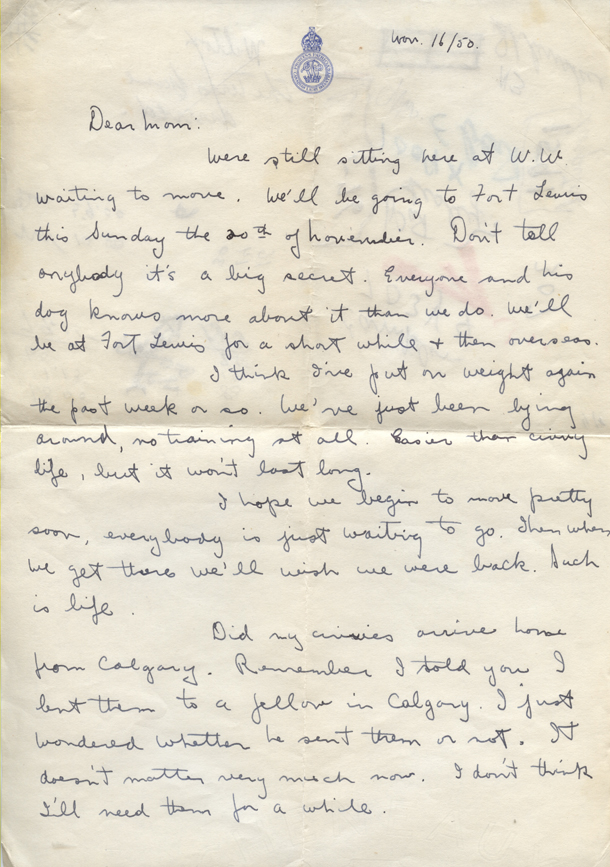 Nov. 16/50.
Dear Mom:
Were still sitting here at W.W.
waiting to move. We'll be going to Fort Lewis
this Sunday the 20th of November. Don't tell
anybody it's a big secret. Everyone and his
dog knows more about it than we do. We'll
be at Fort Lewis for a short while + then overseas.
I think I've put on weight again
the past week or so. We've just been lying
around, no training at all. Easier than civvy
life, but it won't last long.
I hope we begin to move pretty
soon, everybody is just waiting to go. Then when
we get there we'll wish we were back. Such
is life.
Did my civvies arrive home
from Calgary. Remember I told you I
lent them to a fellow in Calgary. I just
wondered whether he sent them or not. It
doesn't matter very much now. I don't think
I'll need them for a while.